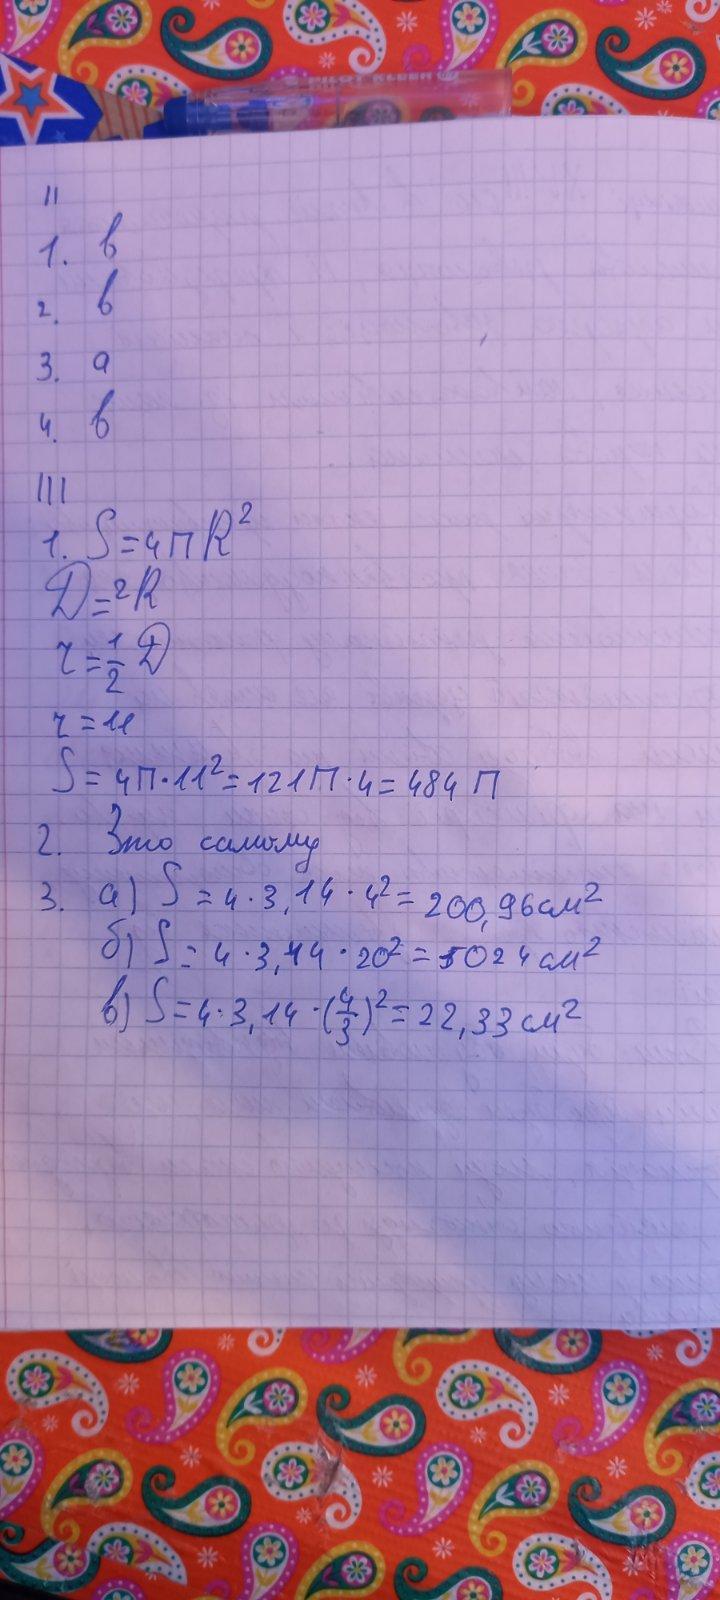 PILOT KLEER
II
1. в
2. в
3. а
4. в
III
1. S = 4П R²
D = 2R
r = 1/2 D
r = 11
S = 4П · 11² = 121П · 4 = 484 П
2. Это самому
3. а) S = 4 · 3,14 · 4² = 200,96 см²
б) S = 4 · 3,14 · 20² = 5024 см²
в) S = 4 · 3,14 · (4/3)² = 22,33 см²